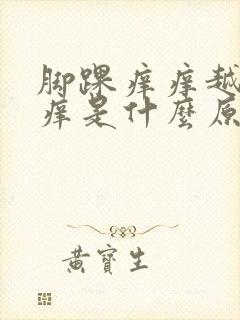 脚踝痒痒越
痒是什麼原
黃寶生